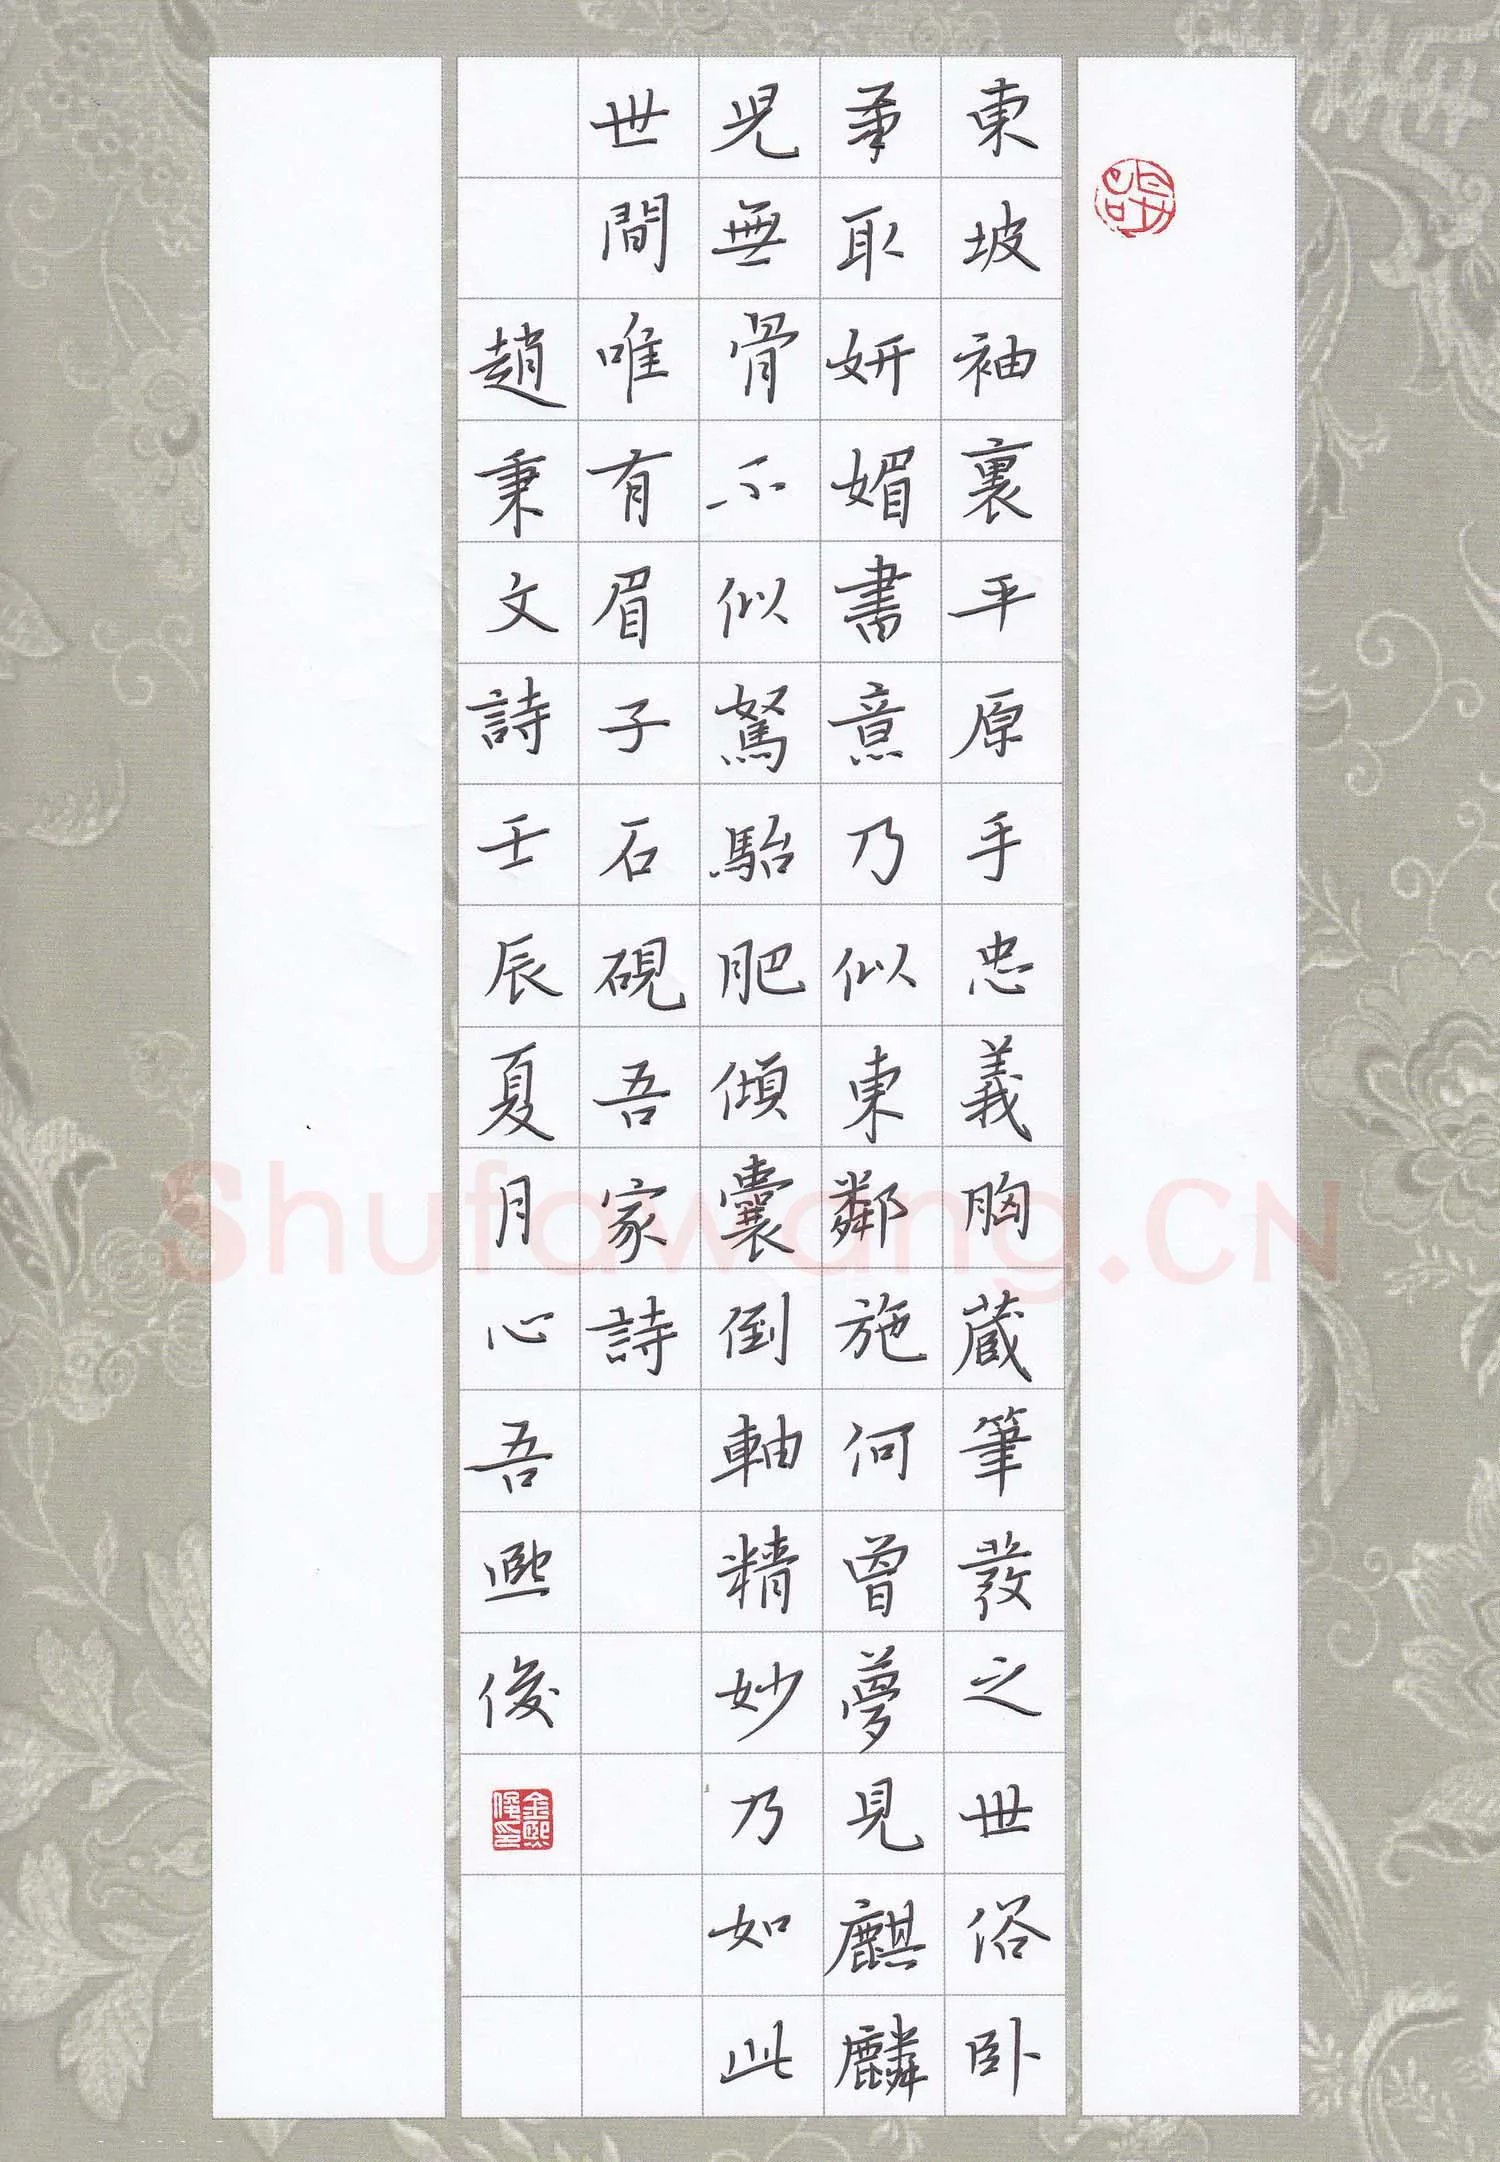 東坡袖裏平原手忠義胸蔵筆發之世俗卧
筆取妍媚書意乃似東鄰施何曾夢見麒麟
児無骨不似駑駘肥傾囊倒軸精妙乃如此
世間唯有眉子石硯吾家詩
趙秉文詩壬辰夏月心吾熙俊
金熙俊印
Shufawang.CN